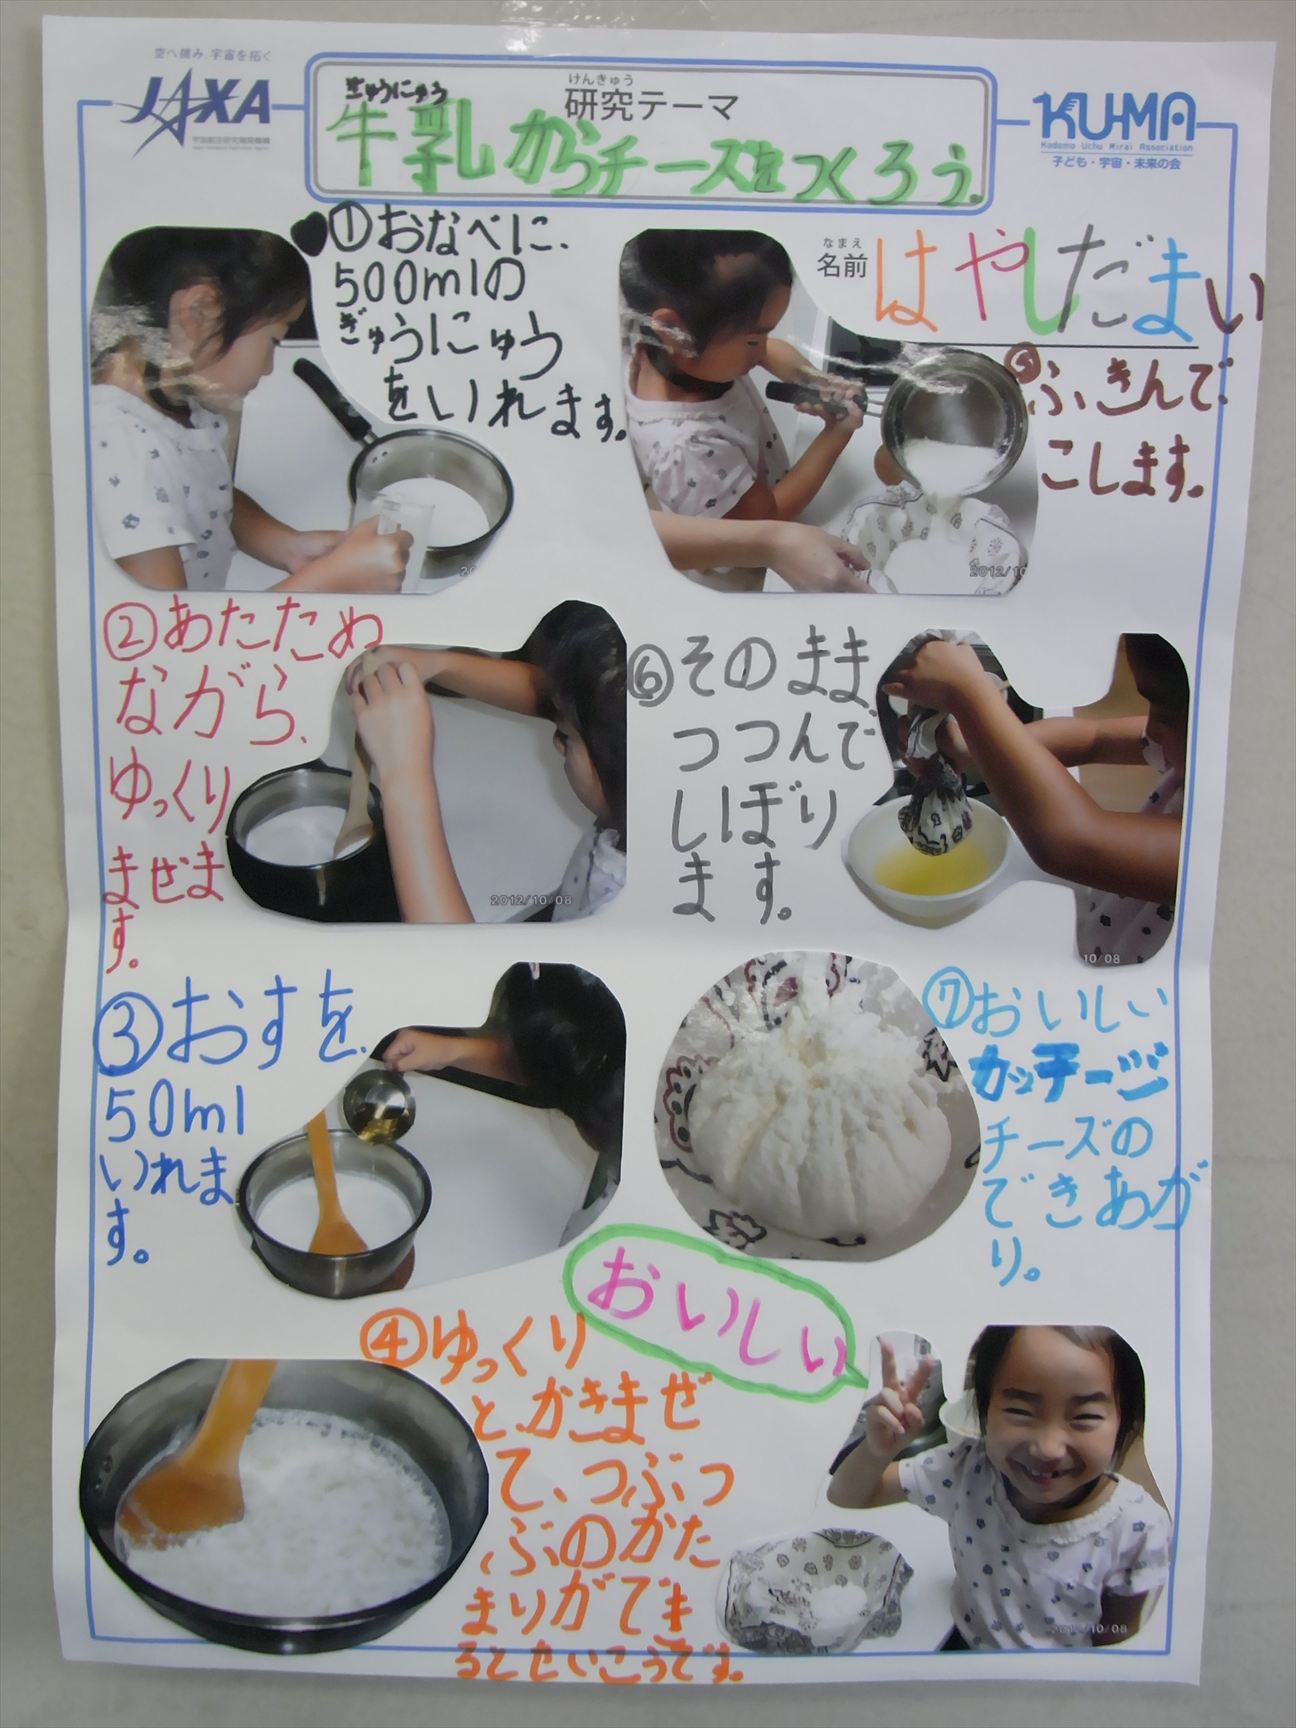 空へ挑み、宇宙を拓く
JAXA
ぎゅうにゅう
けんきゅう
研究テーマ
牛乳からチーズをつくろう。
KU-MA
Kodomo Uchu Mirai Association
子ども・宇宙・未来の会
なまえ
名前
はやしだまい
①おなべに、
500mlの
ぎゅうにゅう
をいれます。
②あたためながら、
ゆっくり
まぜま
す。
2012/10/08
③おすを、
50ml
いれま
す。
④ゆっくり
と、かきまぜ
て、つぶつ
ぶのかた
まりができ
るとせいこうです。
⑤ふきんで、
こします。
2012/10
⑥そのまま、
つつんで
しぼり
ます。
10/08
⑦おいしい
カッテージ
チーズの
できあが
り。
おいしい
2012/10/08